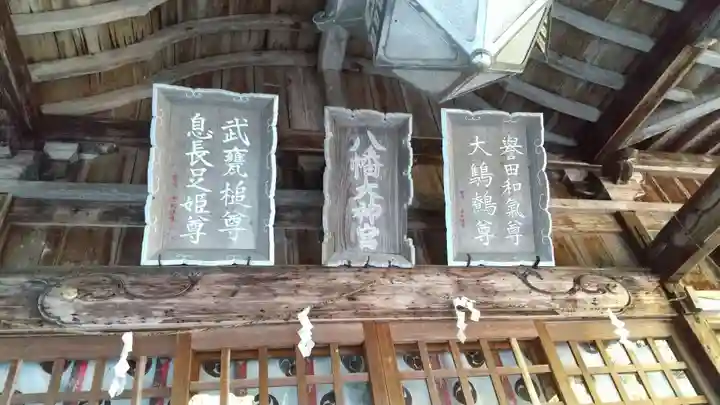 誉田和氣尊
大鷦鷯尊
八幡大神宮
武甕槌尊
息長足姫尊